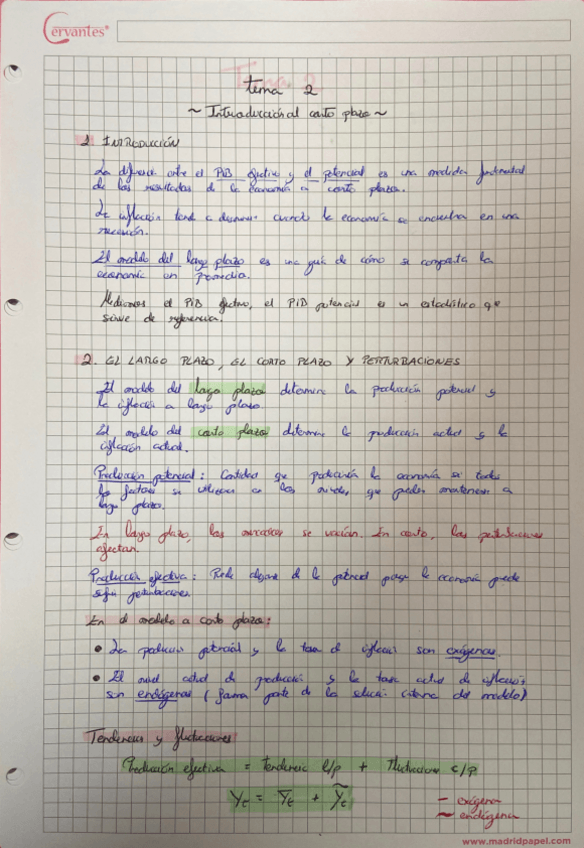 Cervantes
tema 2
~ Introducción al corto plazo ~
1. INTRODUCCIÓN
La diferencia entre el PiB efectivo y el potencial es una medida fundamental
de los resultados de la economía a corto plazo.
La inflación tiende a disminuir cuando la economía se encuentra en una
recesión.
El modelo del largo plazo es una guía de cómo se comporta la
economía en promedio.
Medimos el PiB efectivo, el PiB potencial es un estadístico que
sirve de referencia.
2. EL LARGO PLAZO, EL CORTO PLAZO Y PERTURBACIONES
El modelo del largo plazo determina la producción potencial y
la inflación a largo plazo.
El modelo del corto plazo determina la producción actual y la
inflación actual.
Producción potencial: Cantidad que produciría la economía si todos
los factores se utilizasen en los niveles, que pueden mantenerse a
largo plazo.
En largo plazo, los mercados se vacían. En corto, las perturbaciones
afectan.
Producción efectiva: Puede alejarse de la potencial porque la economía puede
sufrir perturbaciones.
En el modelo a corto plazo:
• La producción potencial y la tasa de inflación son exógenas.
• El nivel actual de producción y la tasa actual de inflación
son endógenas (forma parte de la solución interna del modelo)
Tendencias y fluctuaciones
Producción efectiva = tendencia l/p + fluctuaciones c/p
Yt = Ȳt + Ỹt
– exógena
~ endógena
www.madridpapel.com